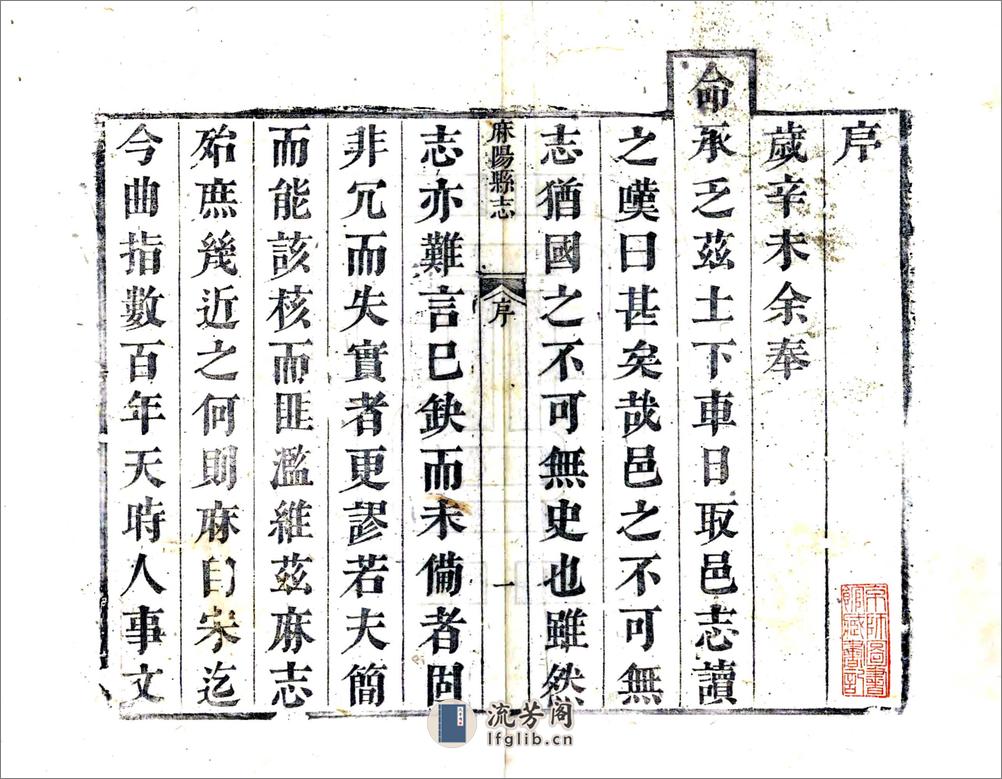 序
歲辛未余奉
命承乏茲土下車日取邑志讀
之嘆曰甚矣哉邑之不可無
志猶國之不可無史也雖然
麻陽縣志
序
一
志亦難言巳缺而未備者固
非冗而失實者更謬若夫簡
而能該核而匪濫維茲麻志
殆庶幾近之何則麻自宋迄
今曲指數百年天時人事文
京師圖書
館藏書記
流芳阁
lfglib.cn